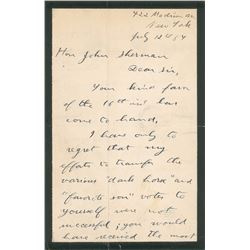 422 Madison Av
New York
July 18th 84
Hon John Sherman
Dear Sir,
Your kind favor
of the 16th inst has
come to hand,
I have only to
regret that my
efforts to transfer the
various "dark horse" and
"favorite son" votes to
yourself were not
successful; you would
have received the most